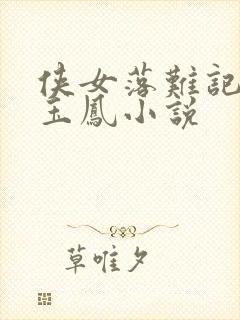 侠女落難記
玉鳳小説
草唯夕